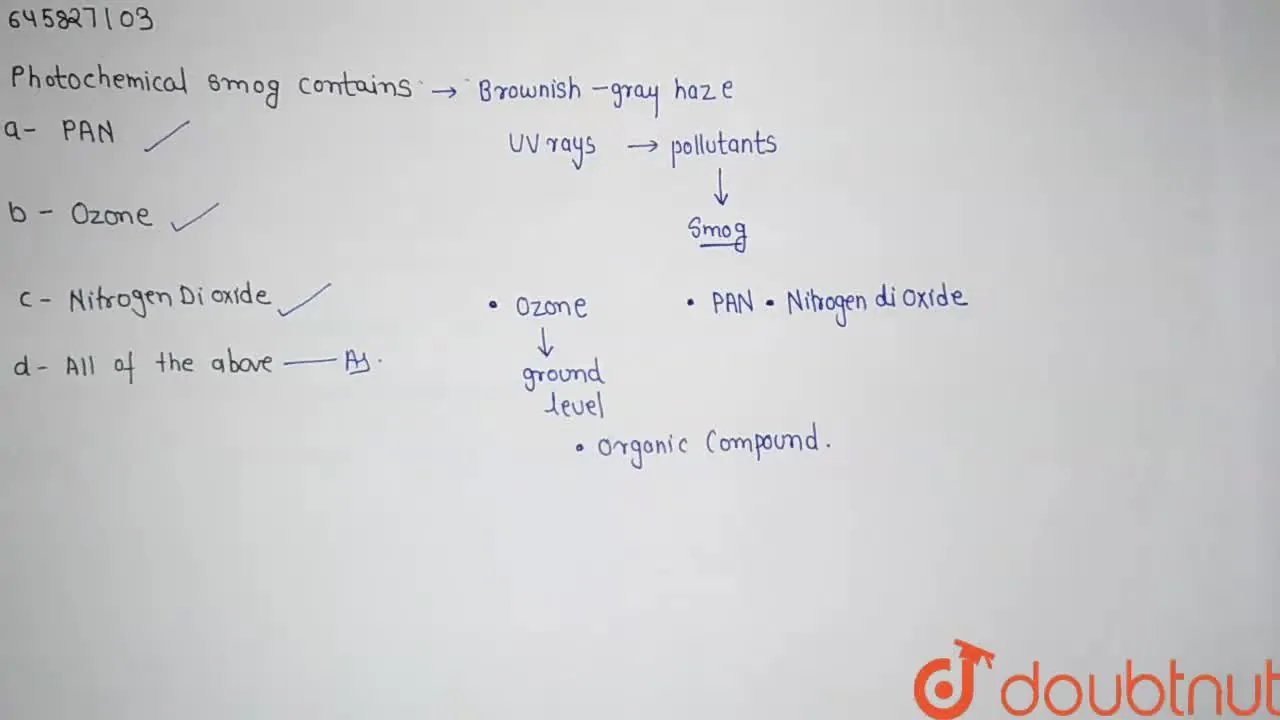 645827103
Photochemical smog contains → Brownish-gray haze
a- PAN
UV rays → pollutants
b - Ozone
Smog
c - Nitrogen Di oxide
• Ozone • PAN • Nitrogen di oxide
d - All of the above
ground
level
• Organic Compound.
doubtnut